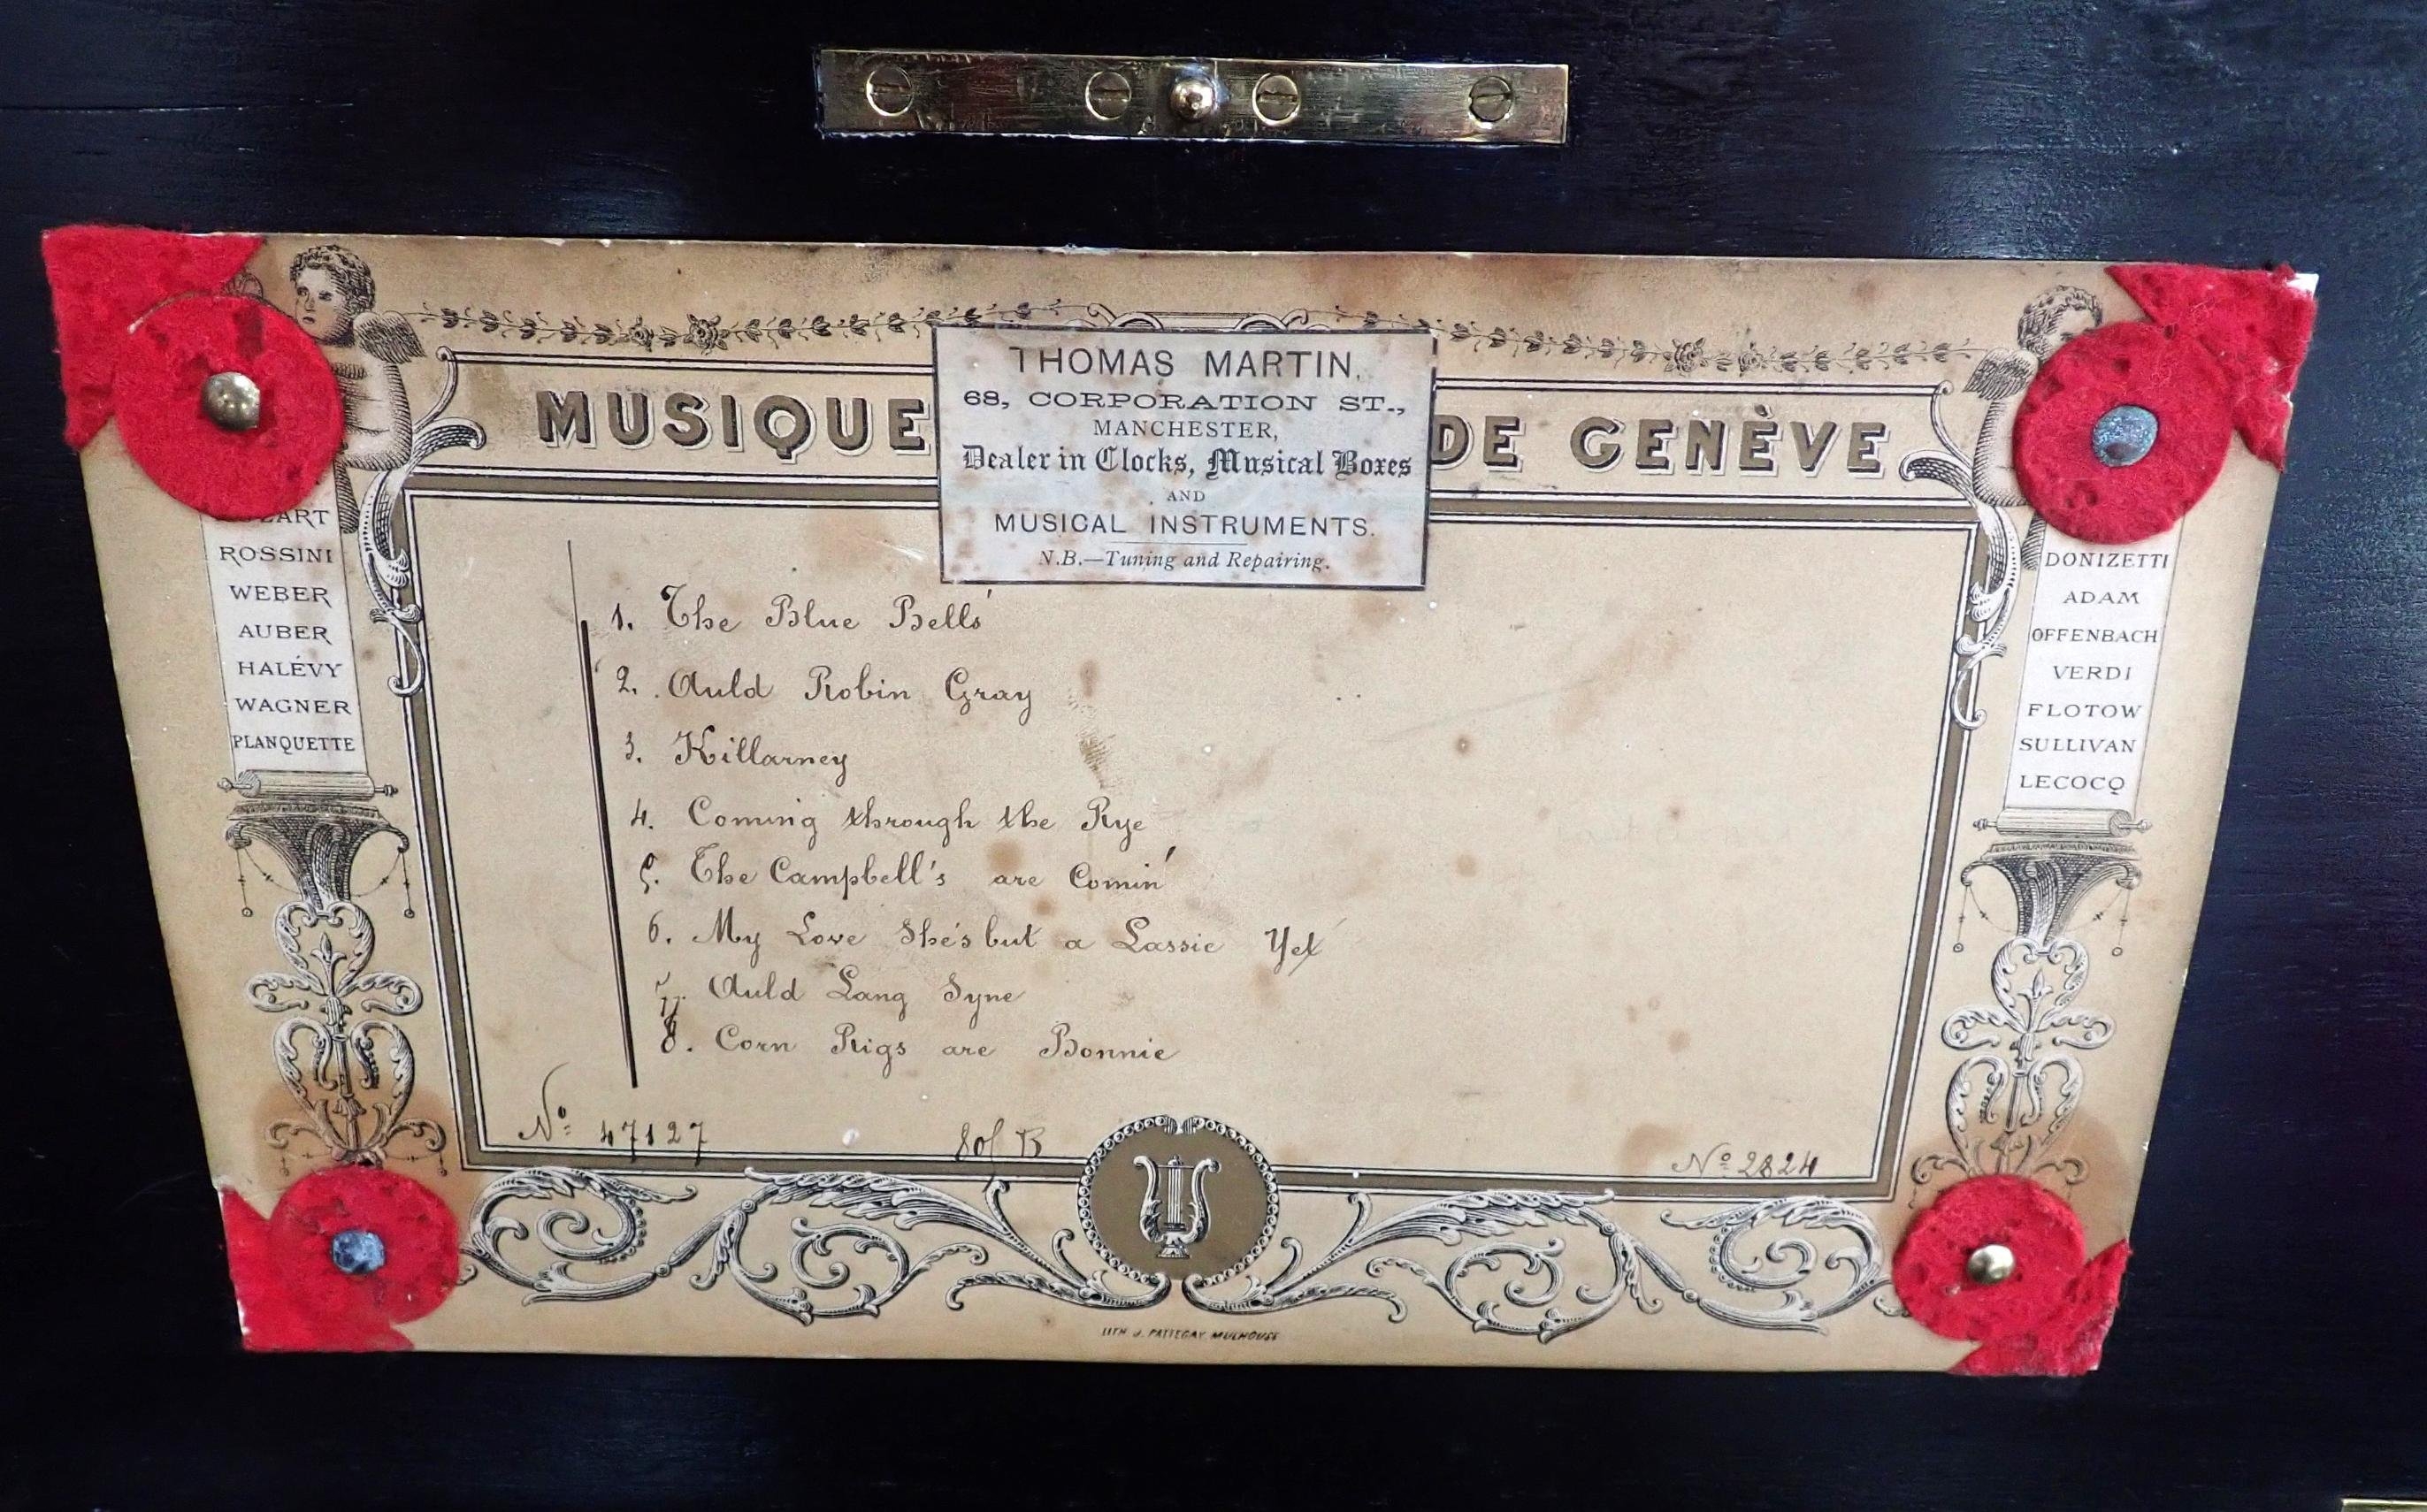 MUSIQUE DE GENÈVE
THOMAS MARTIN,
68, CORPORATION ST.,
MANCHESTER,
Dealer in Clocks, Musical Boxes
AND
MUSICAL INSTRUMENTS.
N.B.—Tuning and Repairing.
ROSSINI
WEBER
AUBER
HALÉVY
WAGNER
PLANQUETTE
1. The Blue Bells'
2. Auld Robin Gray
3. Killarney
4. Coming through the Rye
5. The Campbell's are Comin'
6. My Love She's but a Lassie Yet
7. Auld Lang Syne
8. Corn Rigs are Bonnie
DONIZETTI
ADAM
OFFENBACH
VERDI
FLOTOW
SULLIVAN
LECOCQ
Nº 47127
Nº 2824
LITH J. PATTEGAY MULHOUSE